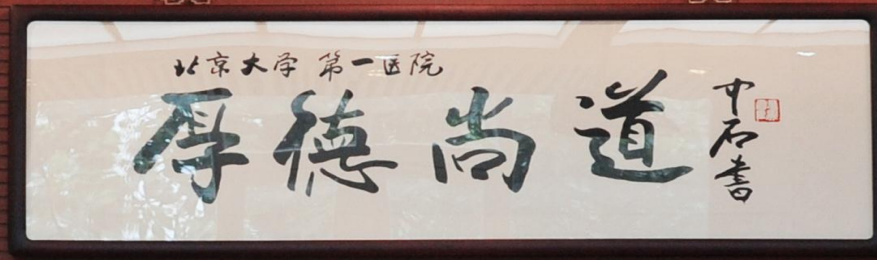 北京大学 第一医院
厚德尚道
中石书